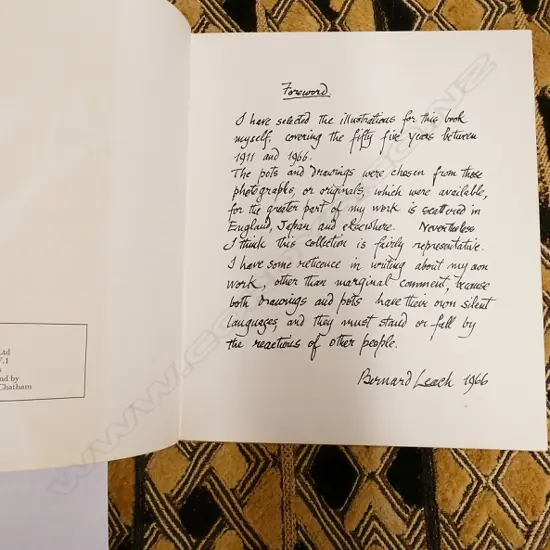 Foreword
I have selected the illustrations for this book
myself, covering the fifty five years between
1911 and 1966.
The pots and drawings were chosen from those
photographs, or originals, which were available,
for the greater part of my work is scattered in
England, Japan and elsewhere. Nevertheless
I think this collection is fairly representative.
I have some reticence in writing about my own
work, other than marginal comment, because
both drawings and pots have their own silent
languages and they must stand or fall by
the reactions of other people.
Bernard Leach 1966
Ltd
nd by
Chatham